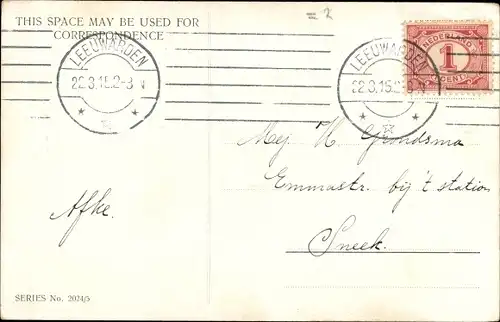 = 2
THIS SPACE MAY BE USED FOR
CORRESPONDENCE
LEEUWARDEN
22.3.15.2-3 N
LEEUWARDEN
22.3.15.2-3 N
NEDERLAND
1
CENT
Mej H Grondsma
Emmastr. bij 't station
Sneek.
Afke.
SERIES No. 2074/5